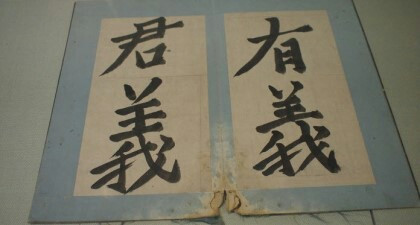 有義
君義